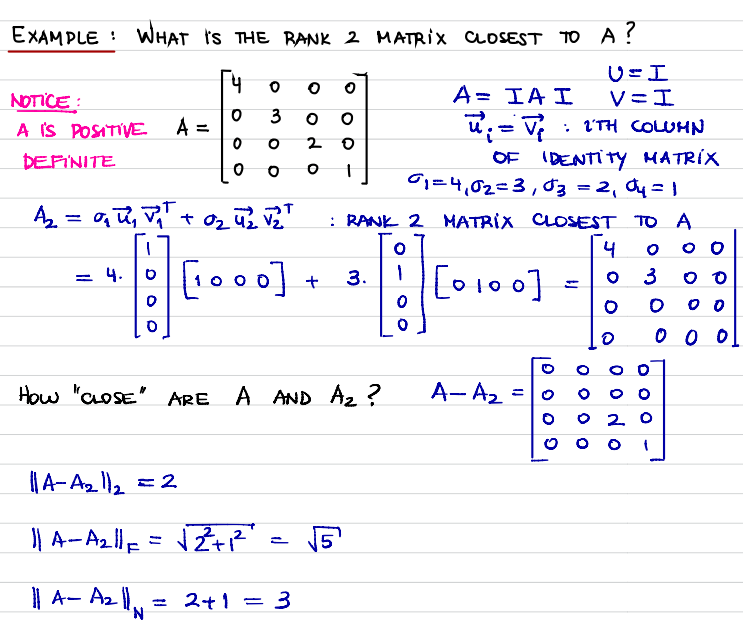 EXAMPLE : WHAT IS THE RANK 2 MATRIX CLOSEST TO A ?
NOTICE :
A IS POSITIVE
DEFINITE
A =
4 0 0 0
0 3 0 0
0 0 2 0
0 0 0 1
A = I A I
U = I
V = I
u⃗ᵢ = v⃗ᵢ : iTH COLUMN
OF IDENTITY MATRIX
σ₁=4, σ₂=3, σ₃=2, σ₄=1
A₂ = σ₁ u⃗₁ v⃗₁ᵀ + σ₂ u⃗₂ v⃗₂ᵀ : RANK 2 MATRIX CLOSEST TO A
= 4. [1 0 0 0] + 3. [0 1 0 0] =
1
0
0
0
0
1
0
0
4 0 0 0
0 3 0 0
0 0 0 0
0 0 0 0
HOW "CLOSE" ARE A AND A₂ ?
A − A₂ =
0 0 0 0
0 0 0 0
0 0 2 0
0 0 0 1
‖A−A₂‖₂ = 2
‖A−A₂‖F = √(2²+1²) = √5
‖A−A₂‖N = 2+1 = 3